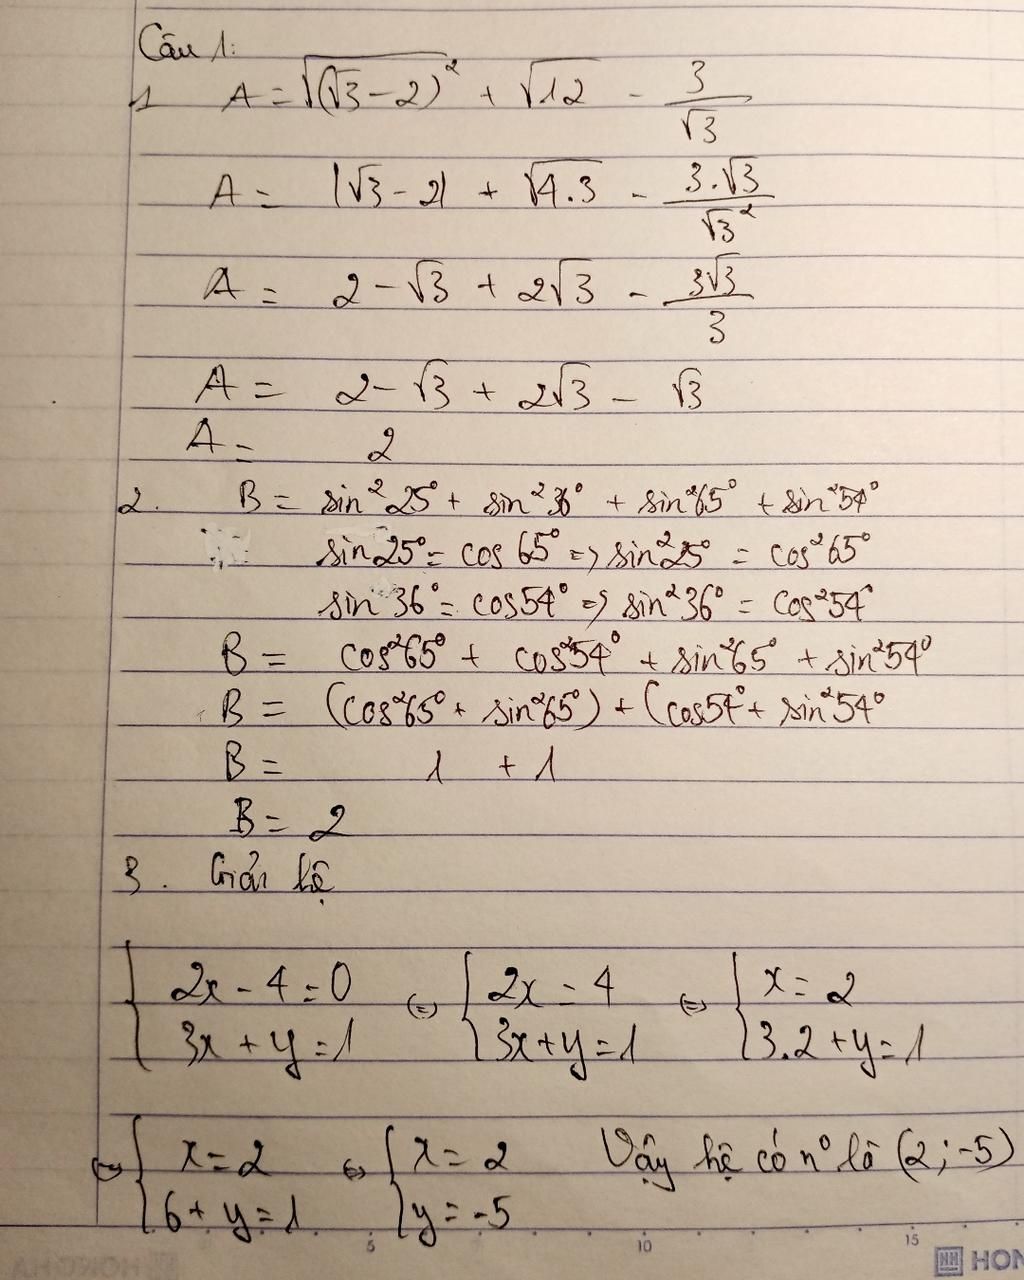 Câu 1:
1 A = √(√3 - 2)² + √12 - 3/√3
A = |√3 - 2| + √4.3 - 3.√3/√3²
A = 2 - √3 + 2√3 - 3√3/3
A = 2 - √3 + 2√3 - √3
A = 2
2. B = sin²25° + sin²36° + sin²65° + sin²54°
sin 25° = cos 65° => sin²25° = cos²65°
sin 36° = cos 54° => sin²36° = cos²54°
B = cos²65° + cos²54° + sin²65° + sin²54°
B = (cos²65° + sin²65°) + (cos54° + sin²54°
B = 1 + 1
B = 2
3. Giải hệ
{ 2x - 4 = 0 (=) { 2x = 4 (=) { x = 2
3x + y = 1 3x + y = 1 3.2 + y = 1
(=) { x = 2 (=) { x = 2 Vậy hệ có n° là (2; -5)
6 + y = 1 y = -5
5 10 15
HH HON